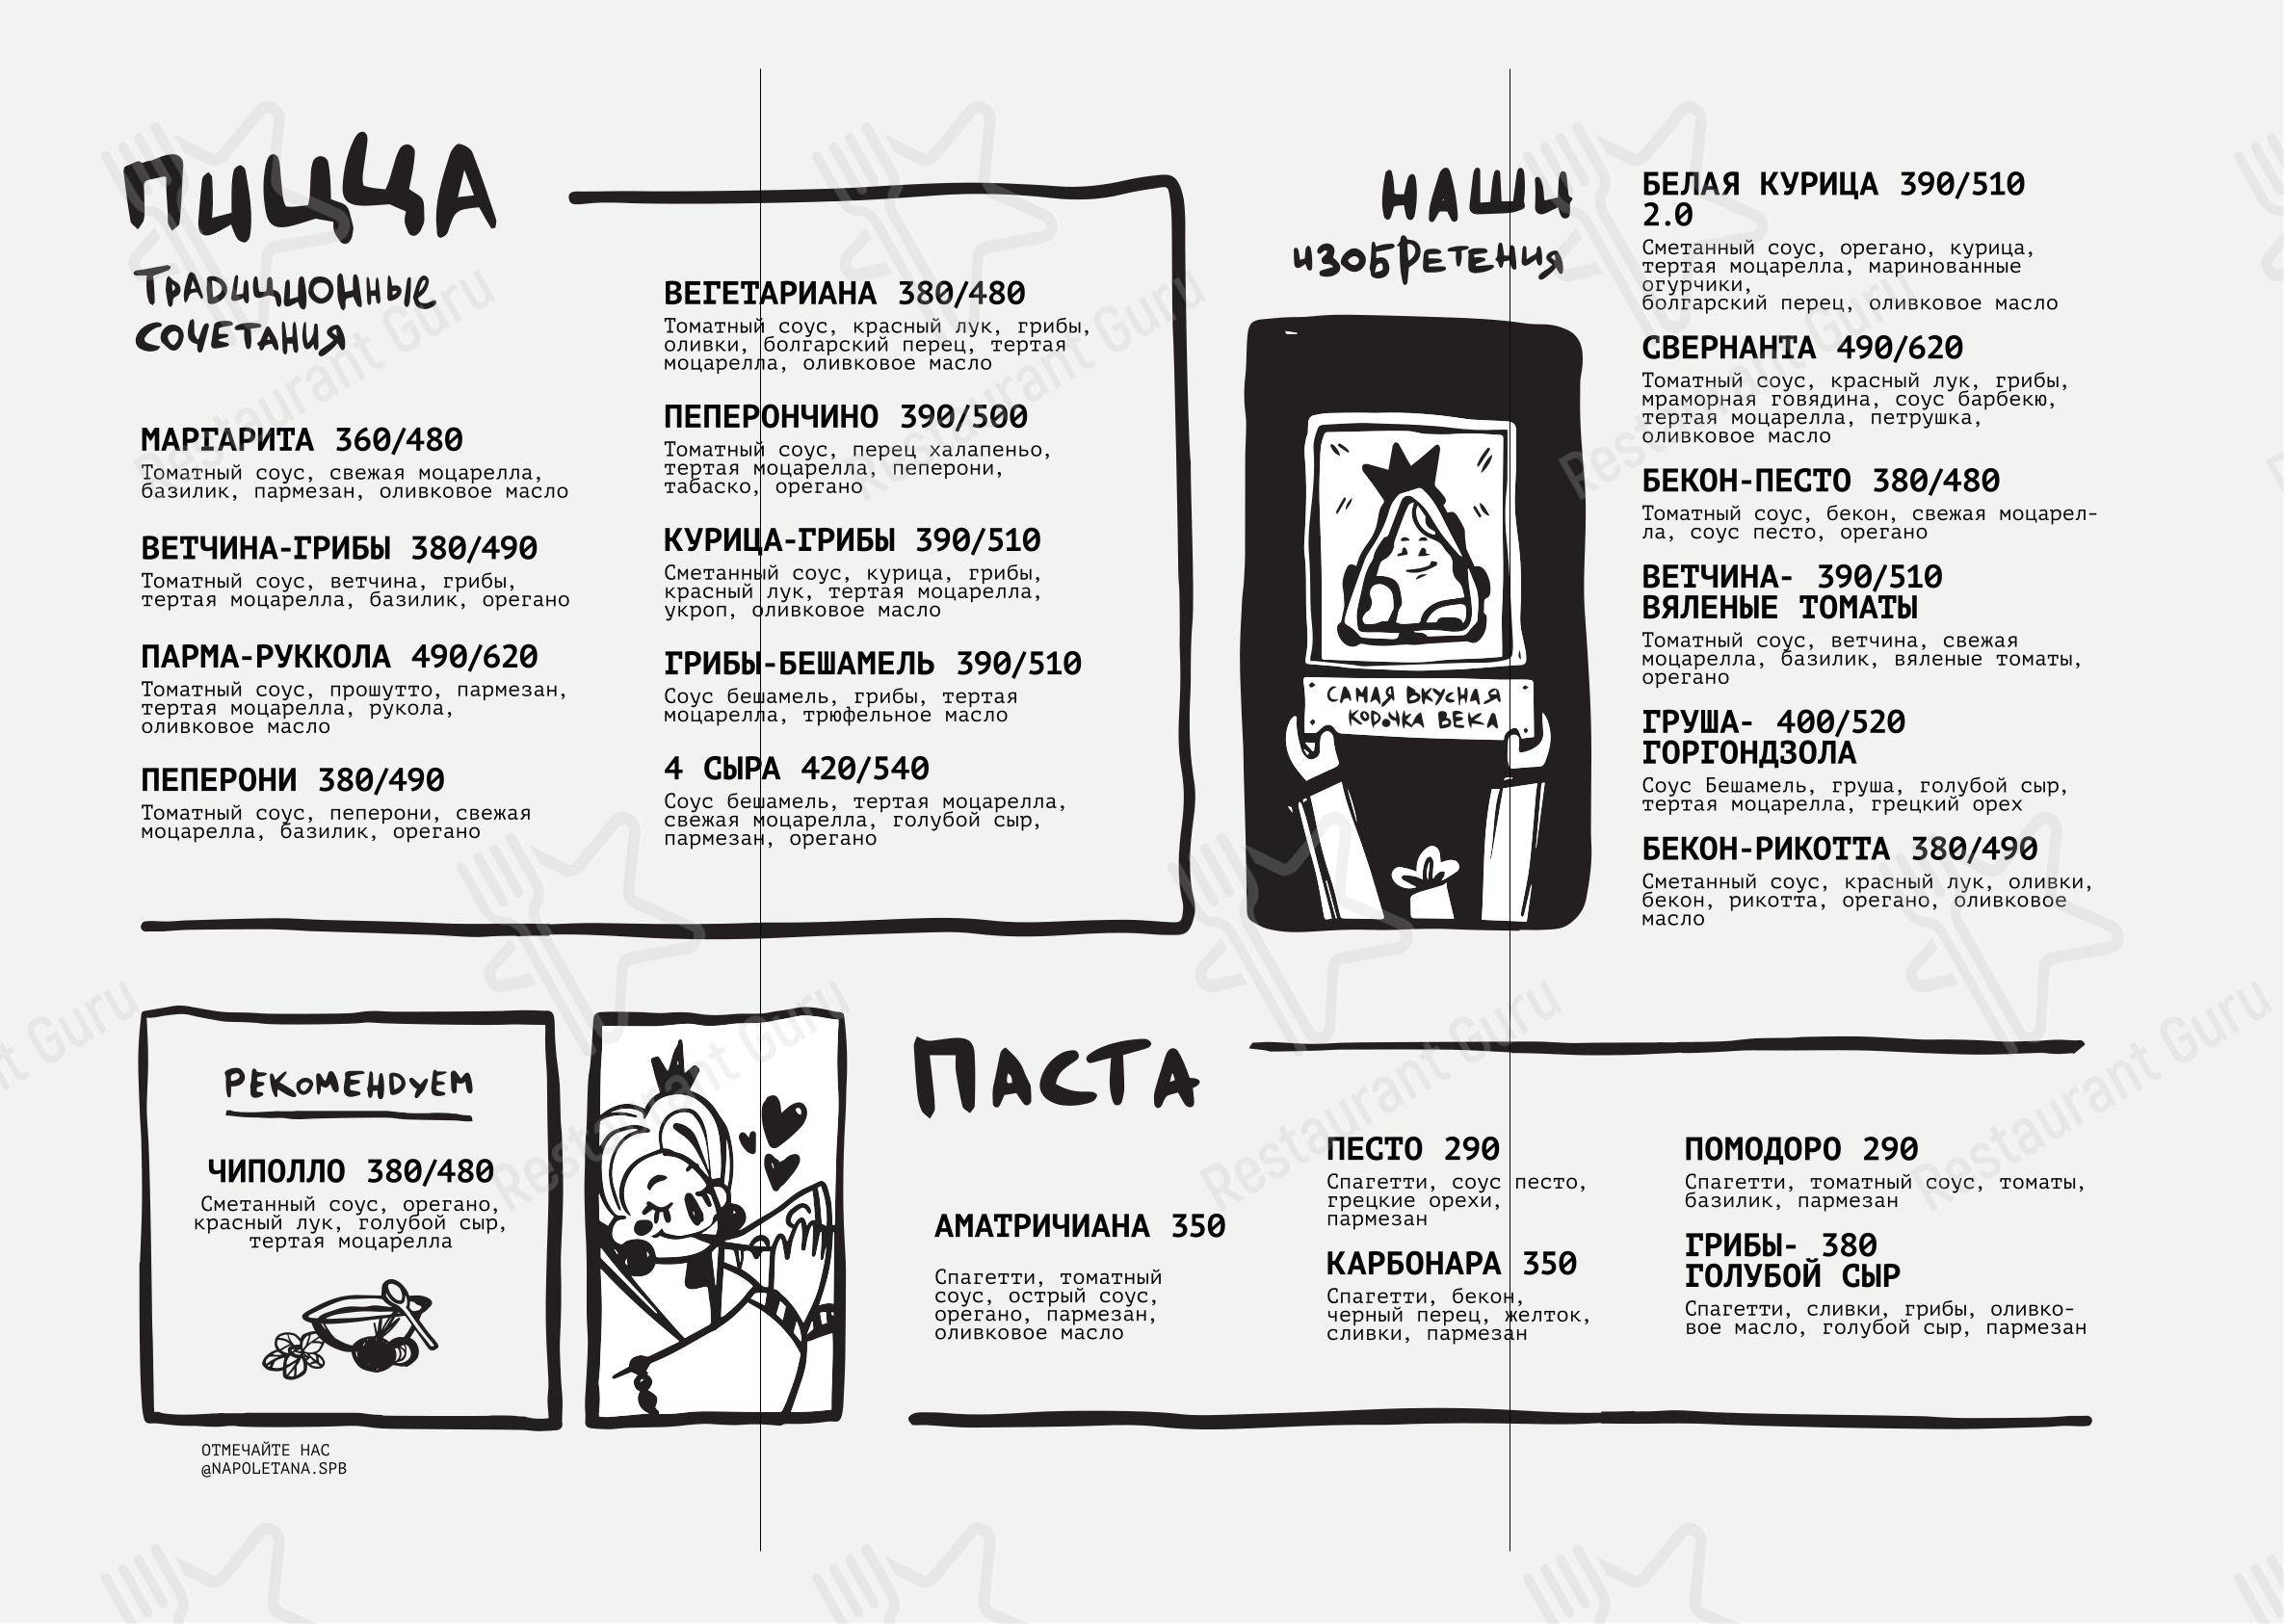 ПИЦЦА
Традиционные
сочетания
МАРГАРИТА 360/480
Томатный соус, свежая моцарелла,
базилик, пармезан, оливковое масло
ВЕТЧИНА-ГРИБЫ 380/490
Томатный соус, ветчина, грибы,
тертая моцарелла, базилик, орегано
ПАРМА-РУККОЛА 490/620
Томатный соус, прошутто, пармезан,
тертая моцарелла, рукола,
оливковое масло
ПЕПЕРОНИ 380/490
Томатный соус, пеперони, свежая
моцарелла, базилик, орегано
ВЕГЕТАРИАНА 380/480
Томатный соус, красный лук, грибы,
оливки, болгарский перец, тертая
моцарелла, оливковое масло
ПЕПЕРОНЧИНО 390/500
Томатный соус, перец халапеньо,
тертая моцарелла, пеперони,
табаско, орегано
КУРИЦА-ГРИБЫ 390/510
Сметанный соус, курица, грибы,
красный лук, тертая моцарелла,
укроп, оливковое масло
ГРИБЫ-БЕШАМЕЛЬ 390/510
Соус бешамель, грибы, тертая
моцарелла, трюфельное масло
4 СЫРА 420/540
Соус бешамель, тертая моцарелла,
свежая моцарелла, голубой сыр,
пармезан, орегано
НАШИ
изобретения
САМАЯ ВКУСНАЯ
КОРОЧКА ВЕКА
БЕЛАЯ КУРИЦА 390/510
2.0
Сметанный соус, орегано, курица,
тертая моцарелла, маринованные
огурчики,
болгарский перец, оливковое масло
СВЕРНАНТА 490/620
Томатный соус, красный лук, грибы,
мраморная говядина, соус барбекю,
тертая моцарелла, петрушка,
оливковое масло
БЕКОН-ПЕСТО 380/480
Томатный соус, бекон, свежая моцарел-
ла, соус песто, орегано
ВЕТЧИНА- 390/510
ВЯЛЕНЫЕ ТОМАТЫ
Томатный соус, ветчина, свежая
моцарелла, базилик, вяленые томаты,
орегано
ГРУША- 400/520
ГОРГОНДЗОЛА
Соус Бешамель, груша, голубой сыр,
тертая моцарелла, грецкий орех
БЕКОН-РИКОТТА 380/490
Сметанный соус, красный лук, оливки,
бекон, рикотта, орегано, оливковое
масло
РЕКОМЕНДУЕМ
ЧИПОЛЛО 380/480
Сметанный соус, орегано,
красный лук, голубой сыр,
тертая моцарелла
ОТМЕЧАЙТЕ НАС
@NAPOLETANA.SPB
ПАСТА
АМАТРИЧИАНА 350
Спагетти, томатный
соус, острый соус,
орегано, пармезан,
оливковое масло
ПЕСТО 290
Спагетти, соус песто,
грецкие орехи,
пармезан
КАРБОНАРА 350
Спагетти, бекон,
черный перец, желток,
сливки, пармезан
ПОМОДОРО 290
Спагетти, томатный соус, томаты,
базилик, пармезан
ГРИБЫ- 380
ГОЛУБОЙ СЫР
Спагетти, сливки, грибы, оливко-
вое масло, голубой сыр, пармезан
Restaurant Guru
Restaurant Guru
Restaurant Guru
Restaurant Guru
Restaurant Guru
Restaurant Guru